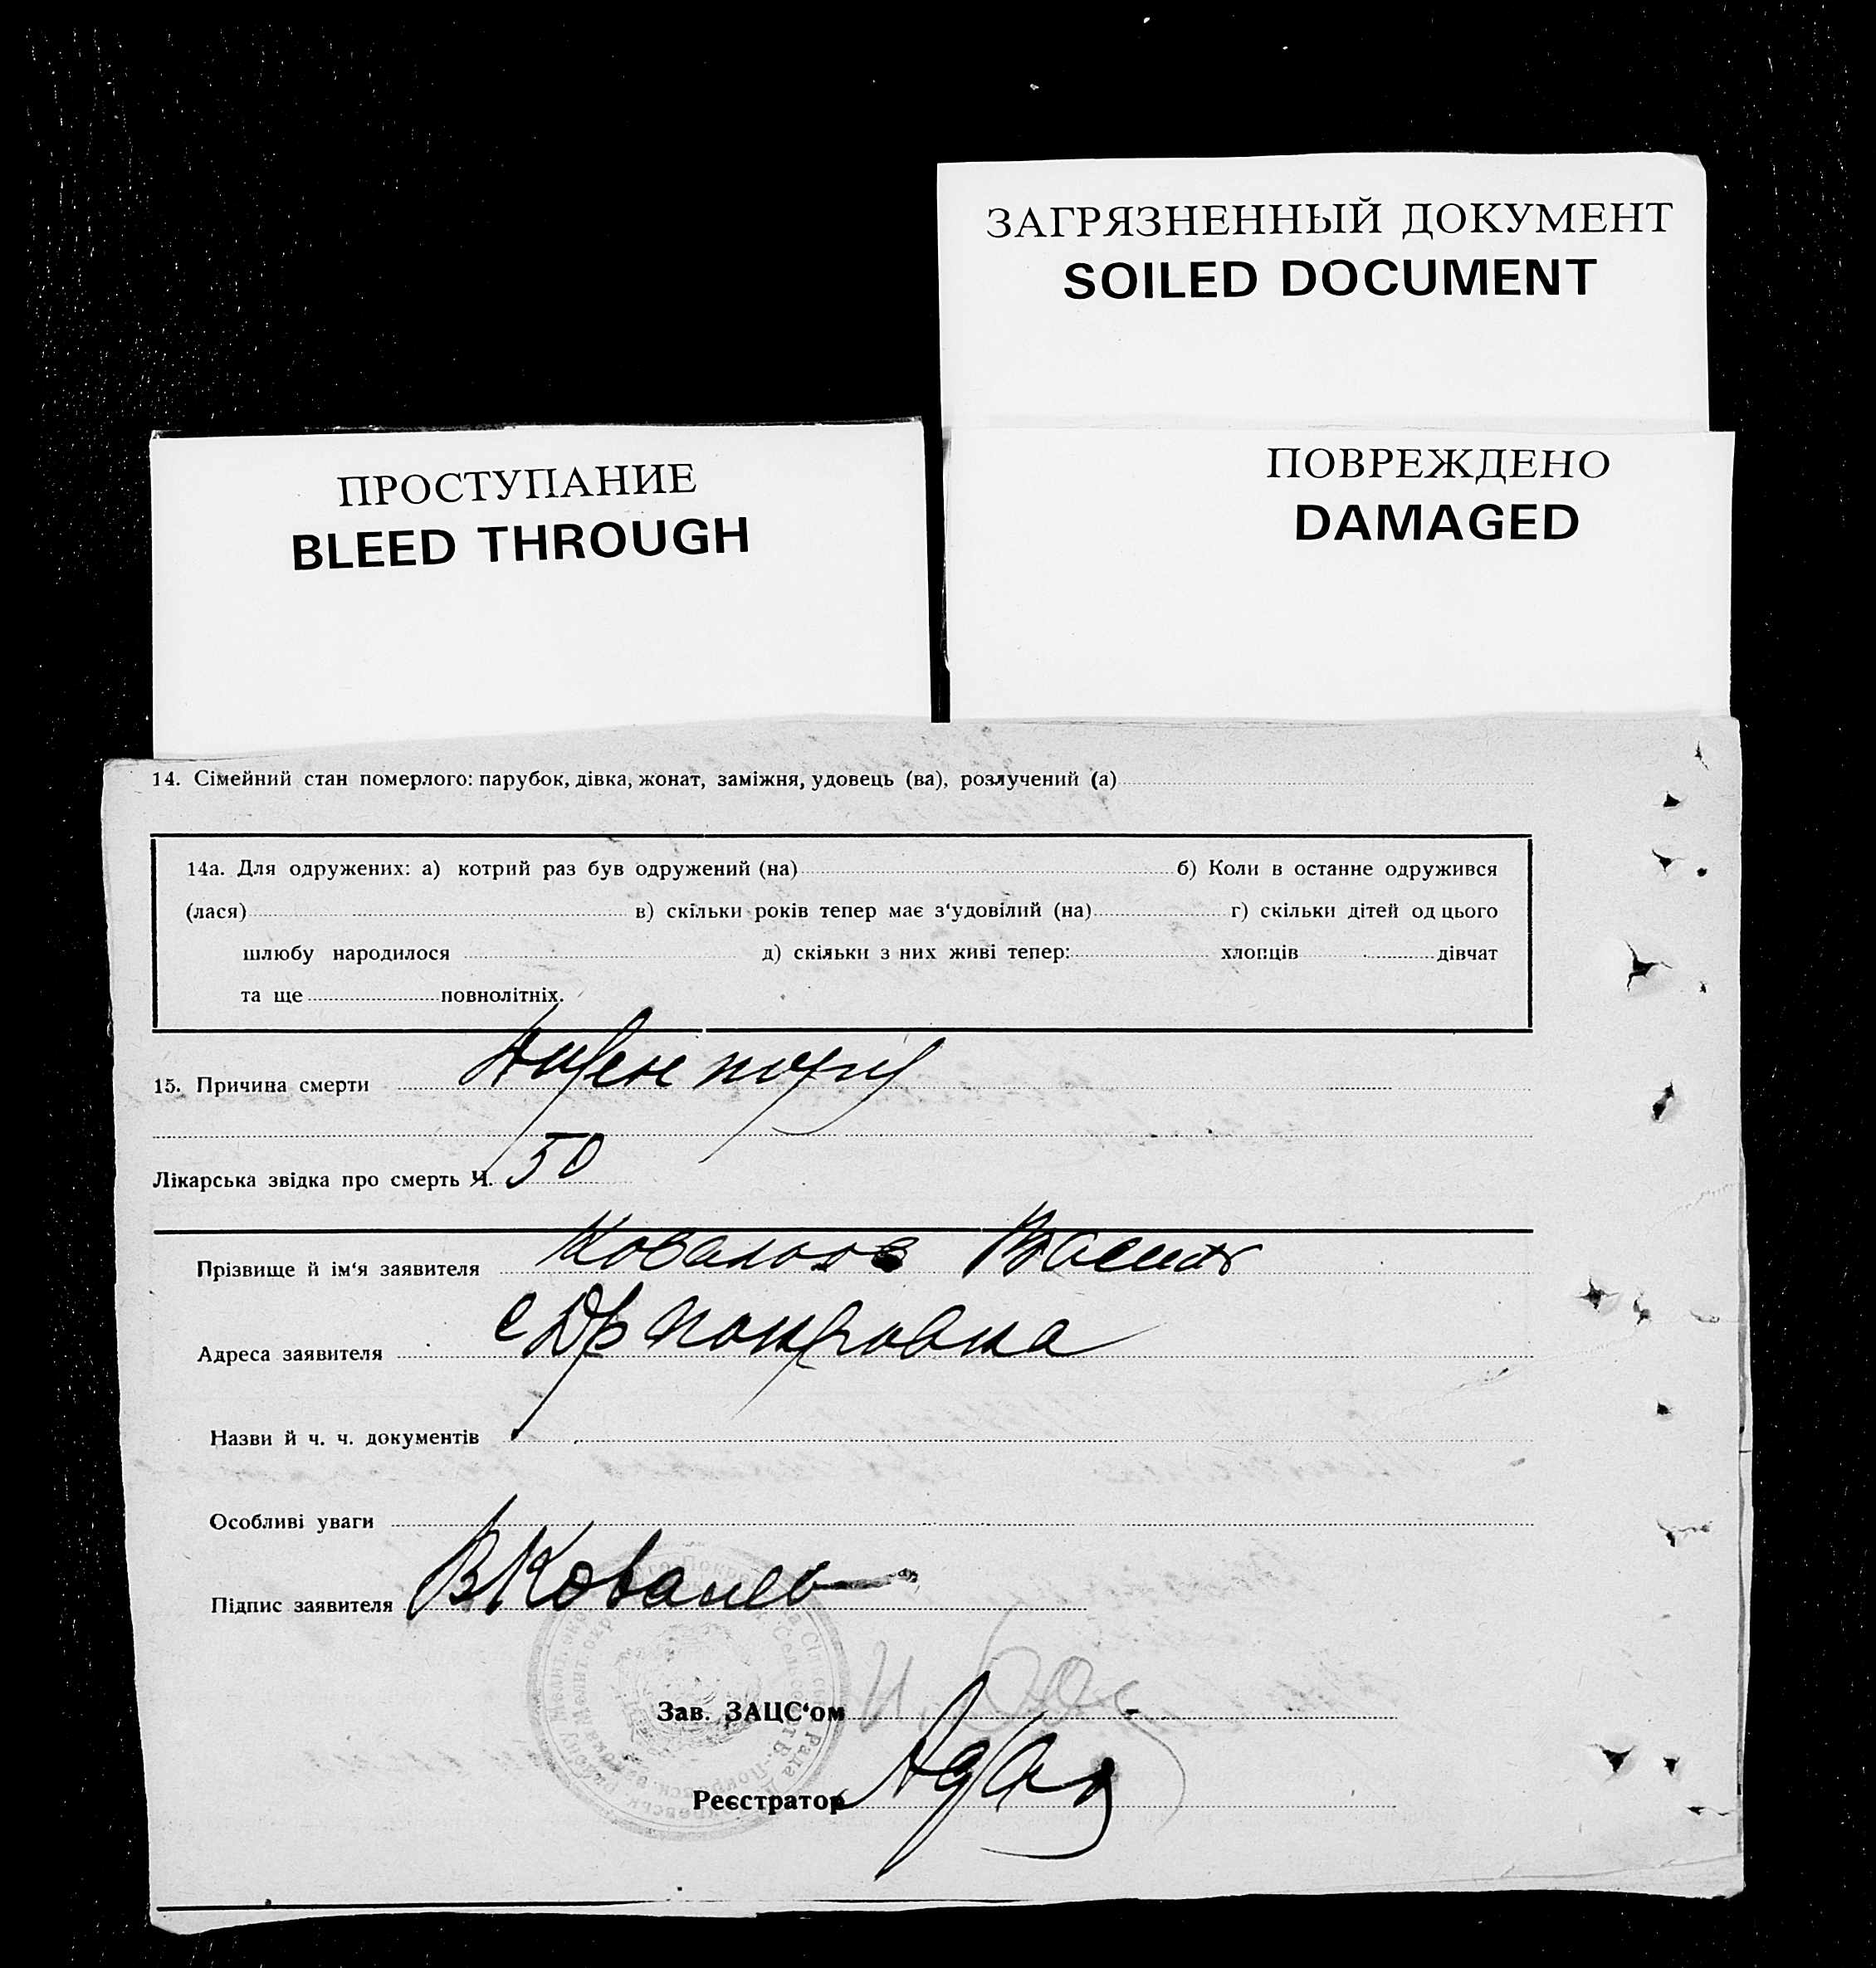 ЗАГРЯЗНЕННЫЙ ДОКУМЕНТ
SOILED DOCUMENT
ПРОСТУПАНИЕ
BLEED THROUGH
ПОВРЕЖДЕНО
DAMAGED
14. Сімейний стан померлого: парубок, дівка, жонат, заміжня, удовець (ва), розлучений (а)
14а. Для одружених: а) котрий раз був одружений (на) б) Коли в останне одружився
(лася) в) скільки років тепер має з‘удовілий (на) г) скільки дітей од цього
шлюбу народилося д) скільки з них живі тепер: хлопців дівчат
та ще повнолітніх.
15. Причина смерти
Лікарська звідка про смерть Ч. 50
Прізвище й ім‘я заявителя
Адреса заявителя
Назви й ч. ч. документів
Особливі уваги
Підпис заявителя ВКовалев
Зав. ЗАЦС‘ом
Реєстратор